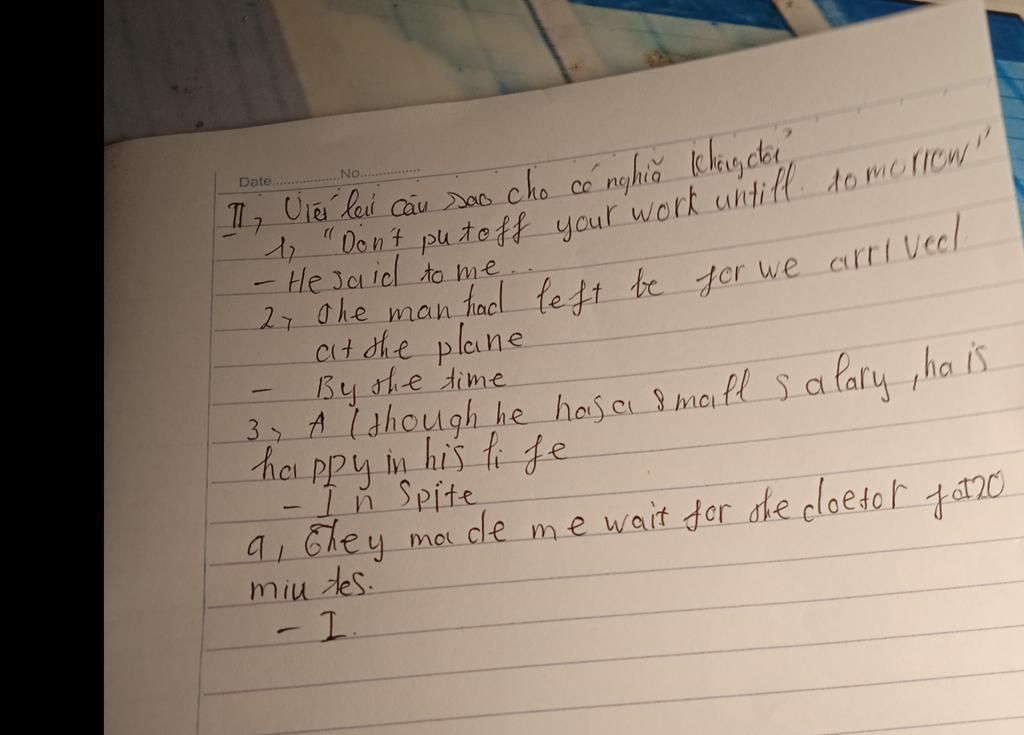 Date................No...............
II, Viết lại câu sao cho có nghĩa không đổi
1, "Don't put off your work untill tomorrow"
- He said to me...
2, The man had left be for we arrived
at the plane
- By the time
3, Although he has a small salary, ha is
happy in his life
- In Spite
a, They made me wait for the doctor for 20
miutes.
- I.